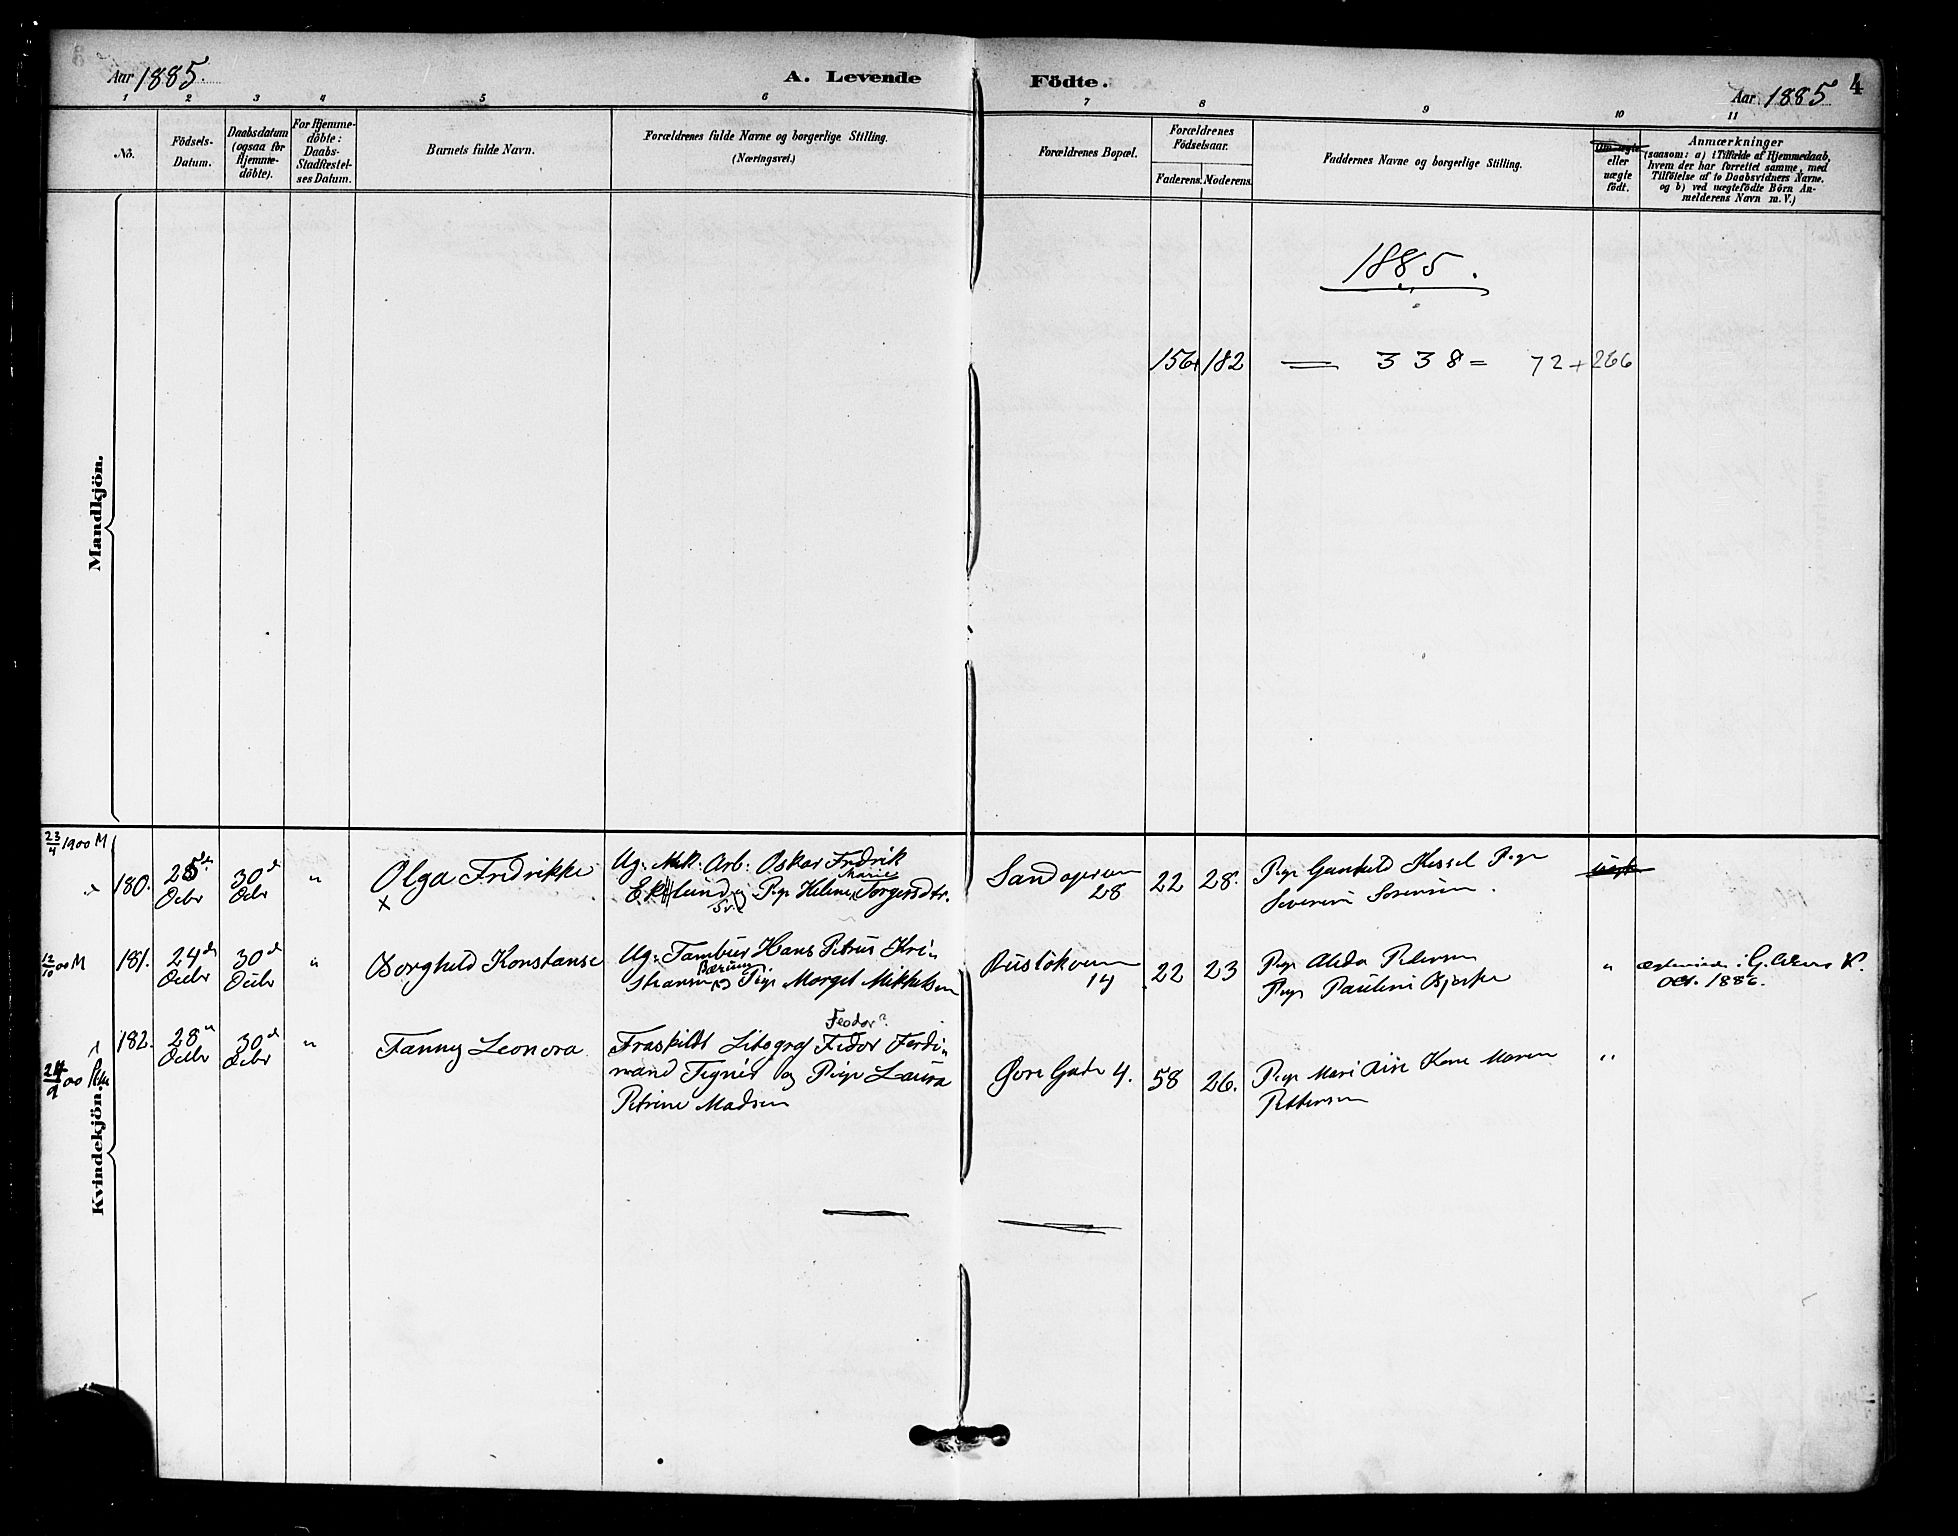 Aar 1885.
A. Levende Födte.
Aar 1885
4
1 2 3 4 5 6 7 8 9 10 11
No.
Födsels-
Datum.
Daabsdatum
(ogsaa for
Hjemme-
döbte).
For Hjemme-
döbte:
Daabs-
Stadfæstel-
ses Datum.
Barnets fulde Navn.
Forældrenes fulde Navne og borgerlige Stilling.
(Næringsvei.)
Forældrenes Bopæl.
Forældrenes
Födselsaar.
Faderens.
Moderens.
Faddernes Navne og borgerlige Stilling.
Om ægte
eller
uægte
födt.
Anmærkninger
(saasom: a) i Tilfælde af Hjemmedaab,
hvem der har forrettet samme, med
Tilföielse af to Daabsvidners Navne.
og b) ved uægtefödte Börn An-
melderens Navn m. V.)
1885.
156+ 182 = 338 = 72 + 266
Mandkjön.
23/4 1900 M
180.
25de
Decbr
30d
Decbr
"
Olga Fredrikke
x
Ug. Mek. Arb. Oskar Fredrik
Marie
Eklund og Pige Helene Torgersdtr.
Sv.
28
22
28.
Pige Gunhild Hessel Pige
Severine Sorensen.
uægte
12/10 00 M
181.
24de
Decbr
30d
Decbr
"
Borghild Konstanse
Ug. Tambur Hans Petrus Kri-
Bærum
stiansen og Pige Marget Mikkelsen
14
22
23
Pige Alida Petersen
Pige Pauline Bjerke
"
Oct. 1886.
182.
28
Decbr
30d
Decbr
"
Fanny Leonora
Feodor?
Fraskildt Litograf Fedor Ferdi-
nand Tegnér og Pige Laura
Petrine Madsen
Gade 4.
58
26.
Pige Mari Kone Maren
Pettersen
"
24/9 00
Kvindekjön.